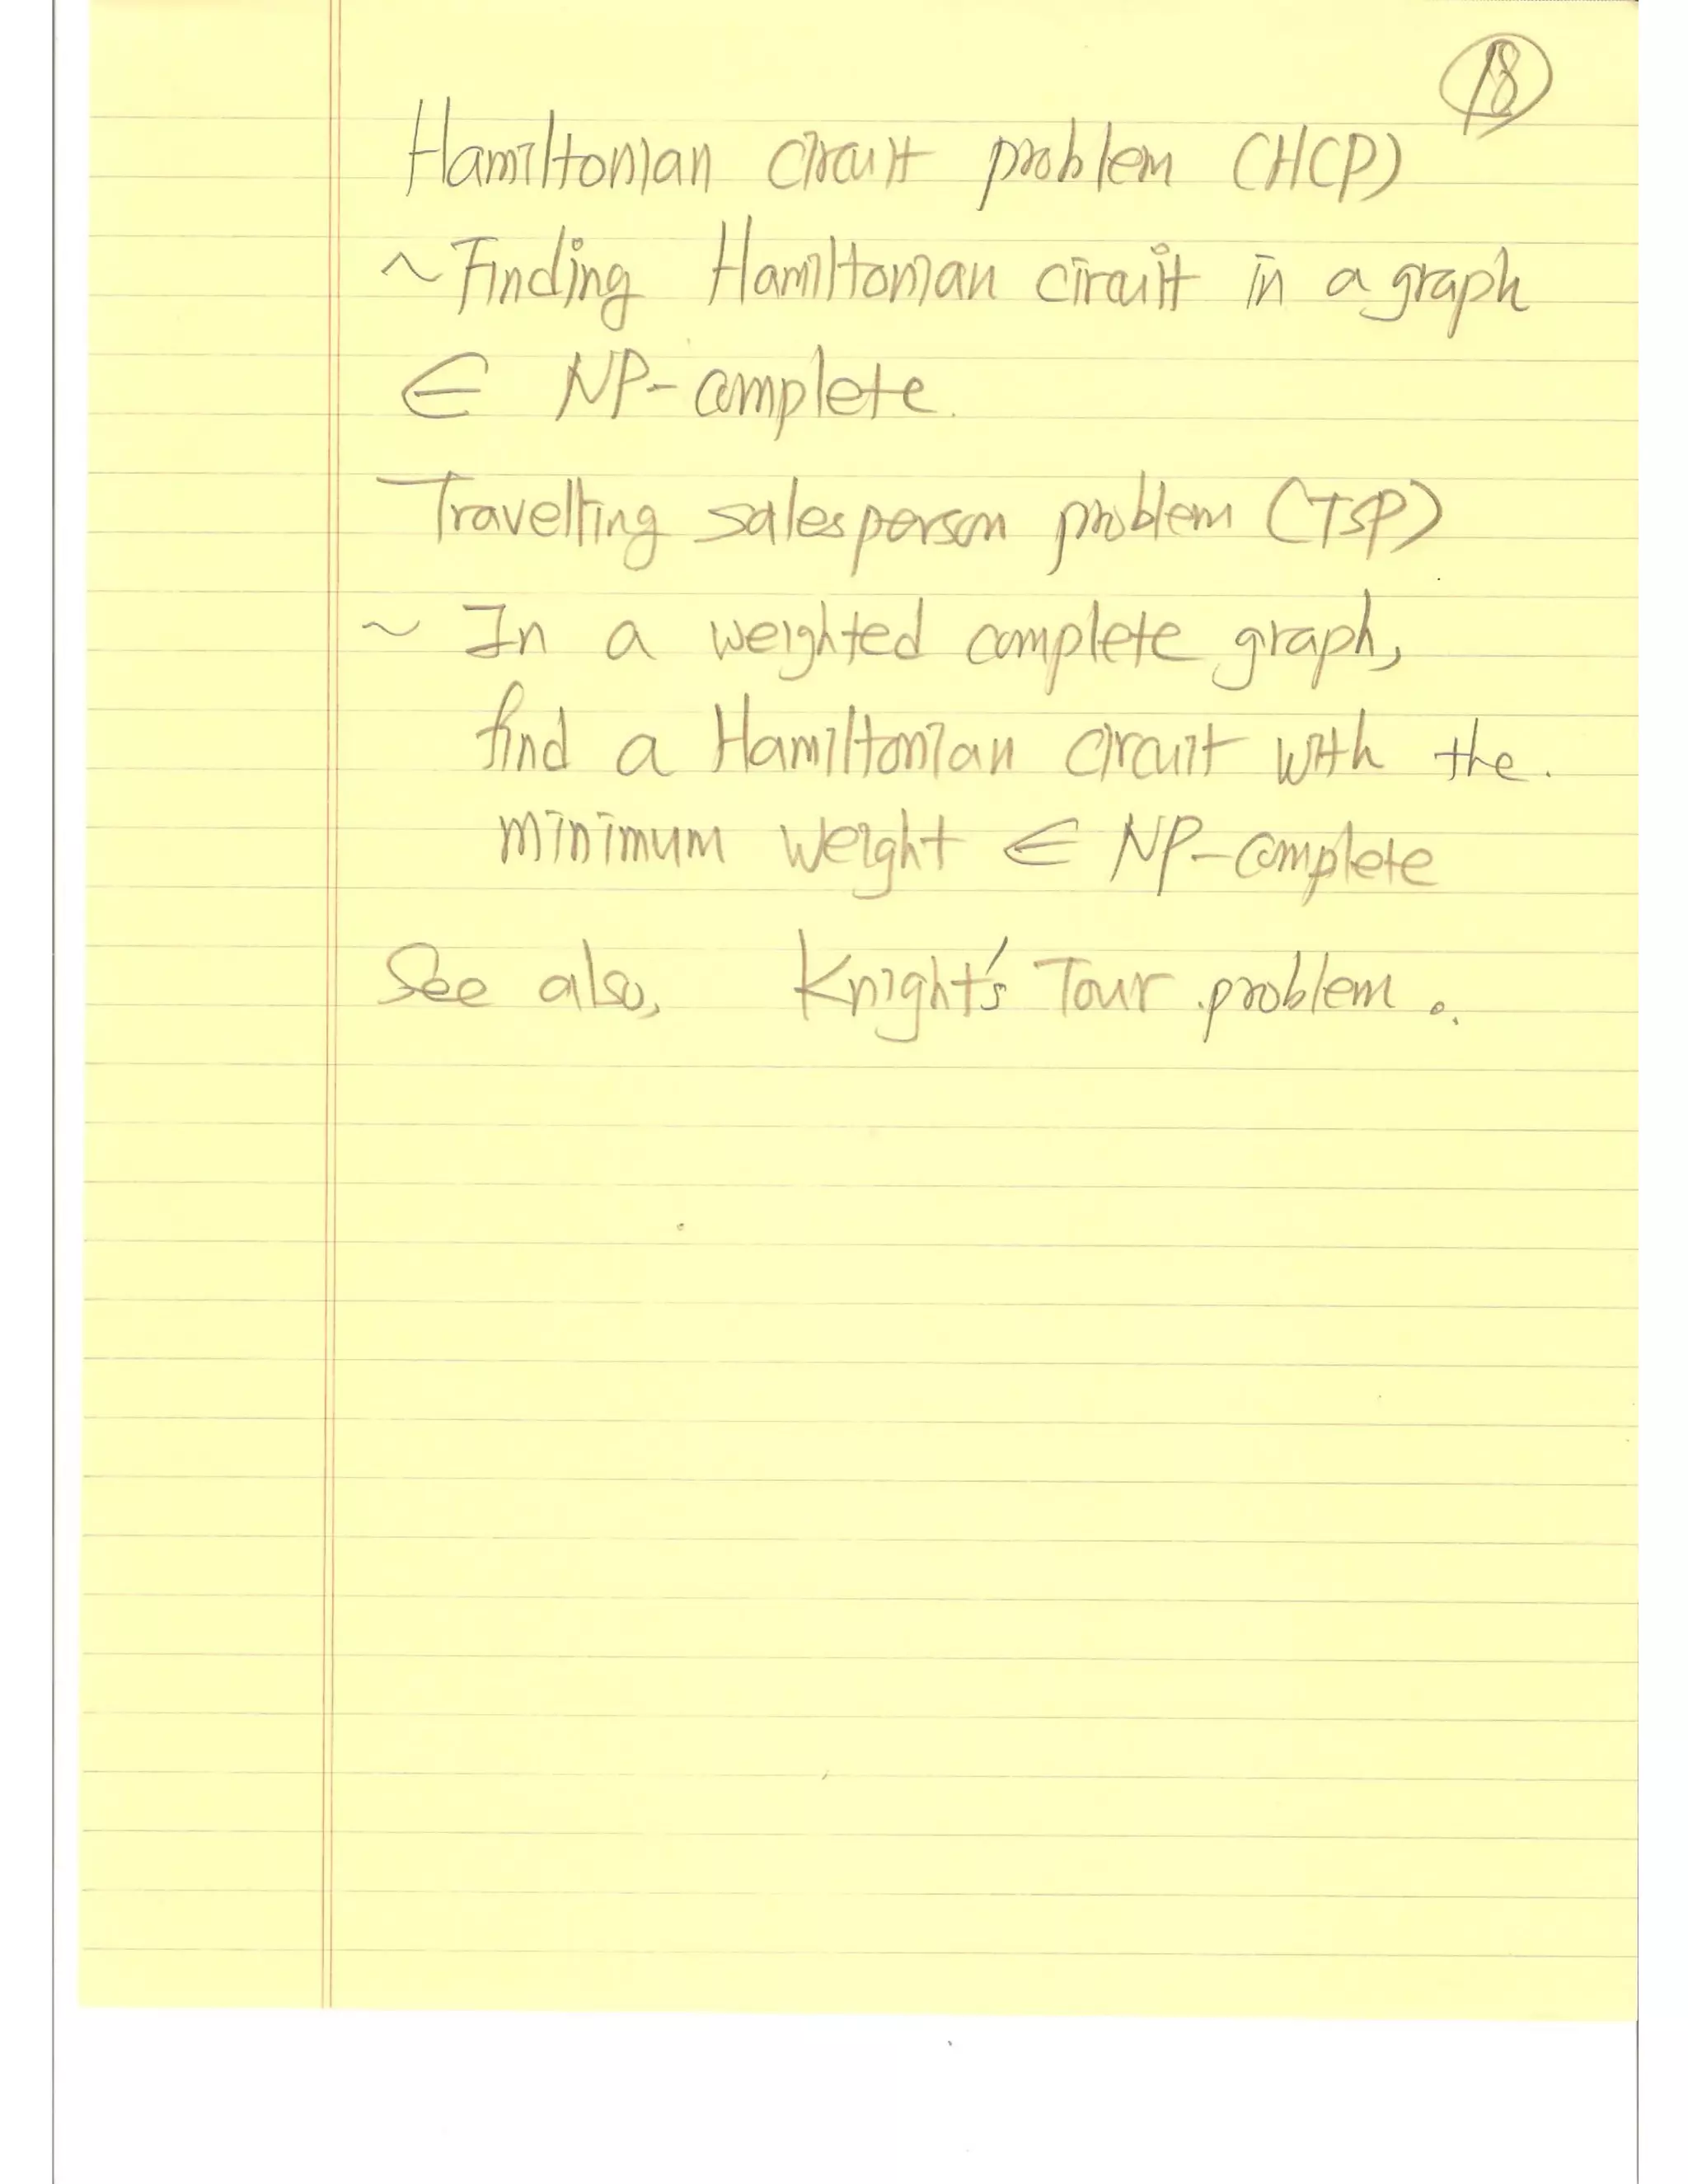 18
Hamiltonian circuit problem (HCP)
~ Finding Hamiltonian circuit in a graph
∈ NP-complete.
Travelling salesperson problem (TSP)
~ In a weighted complete graph,
find a Hamiltonian circuit with the
minimum weight ∈ NP-complete
See also, Knight's Tour problem.